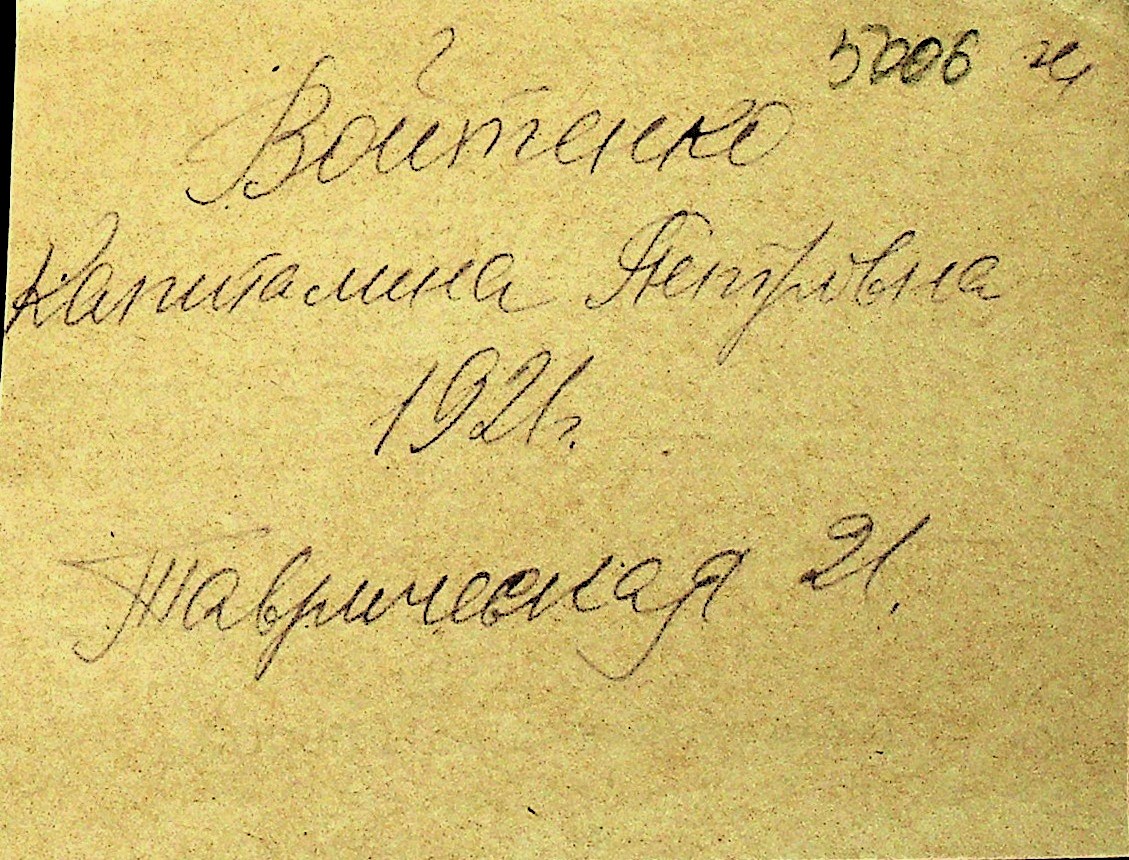 5006 ж
Войтенко
Капиталина Петровна
1921г.
Таврическая 21.